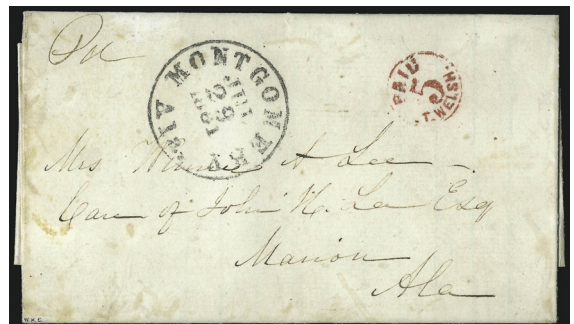 Paid
MONTGOMERY Ala
JUL
29
1861
PAID 5
T. WELSH
Mrs Winnie A Lee
Care of John H. Lee Esq
Marion
Ala
W.H.C.